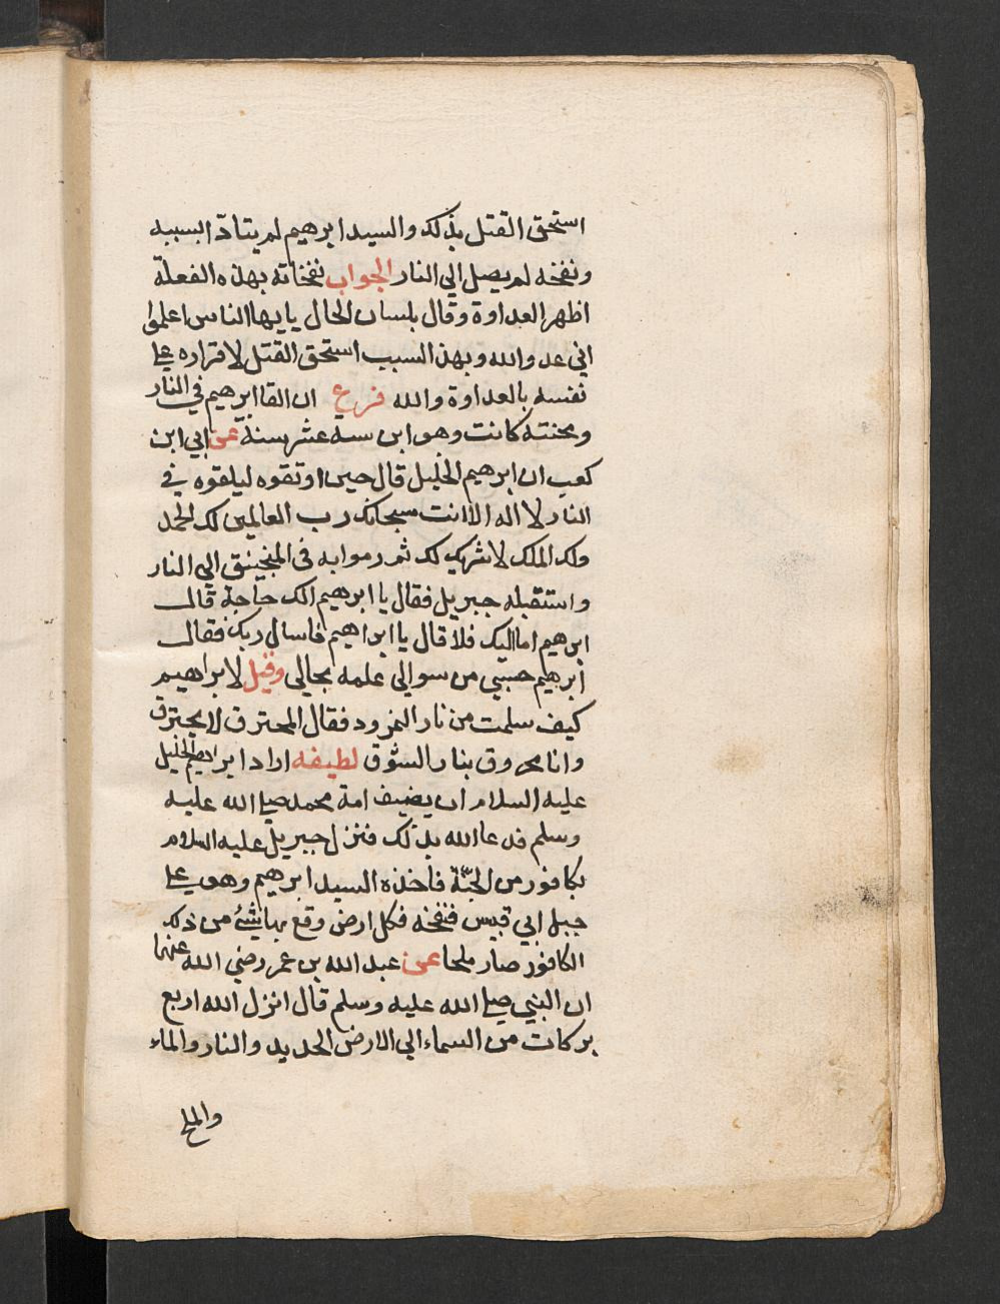 استحق القتل بذلك والسيد ابرهيم لم يتاذ ابسببه
ونفخه لم يصل الي النار الجواب نفخاته بهذه الفعلة
اظهر العداوة وقال بلسان الحال يا يها الناس اعلموا
اني عدو الله وبهذ السبب استحق القتل لاقراره علي
نفسه بالعداوة والله فرع ان القا ابرهيم في النار
ومحنته كانت وهو ابن ستة عشر سنة عن ابي ابن
كعب ان ابرهيم الخليل قال حين اوثقوه ليلقوه في
النار لا اله الا انت سبحانك رب العالمين لك الحمد
ولك الملك لا شريك لك ثم رموا به في المنجنيق الي النار
واستقبله جبريل فقال يا ابرهيم الك حاجة قال
ابرهيم اما اليك فلا قال يا ابراهيم فاسال ربك فقال
ابرهيم حسبي من سوالي علمه بحالي وقيل لابراهيم
كيف سلمت من نار النمرود فقال المحترق لا يحترق
وانا محروق بنار الشوق لطيفه اراد ابراهيم الخليل
عليه السلام ان يضيف امة محمد صلي الله عليه
وسلم فدعا الله بذلك فنزل جبريل عليه السلام
بكافور من الجنة فاخذه السيد ابرهيم وهو علي
جبل ابي قبيس فنفخه فكل ارض وقع بها شيئ من ذلك
الكافور صار ملحا عن عبد الله بن عمر رضي الله عنهما
ان النبي صلي الله عليه وسلم قال انزل الله اربع
بركات من السماء الي الارض الحديد والنار والماء
والملح